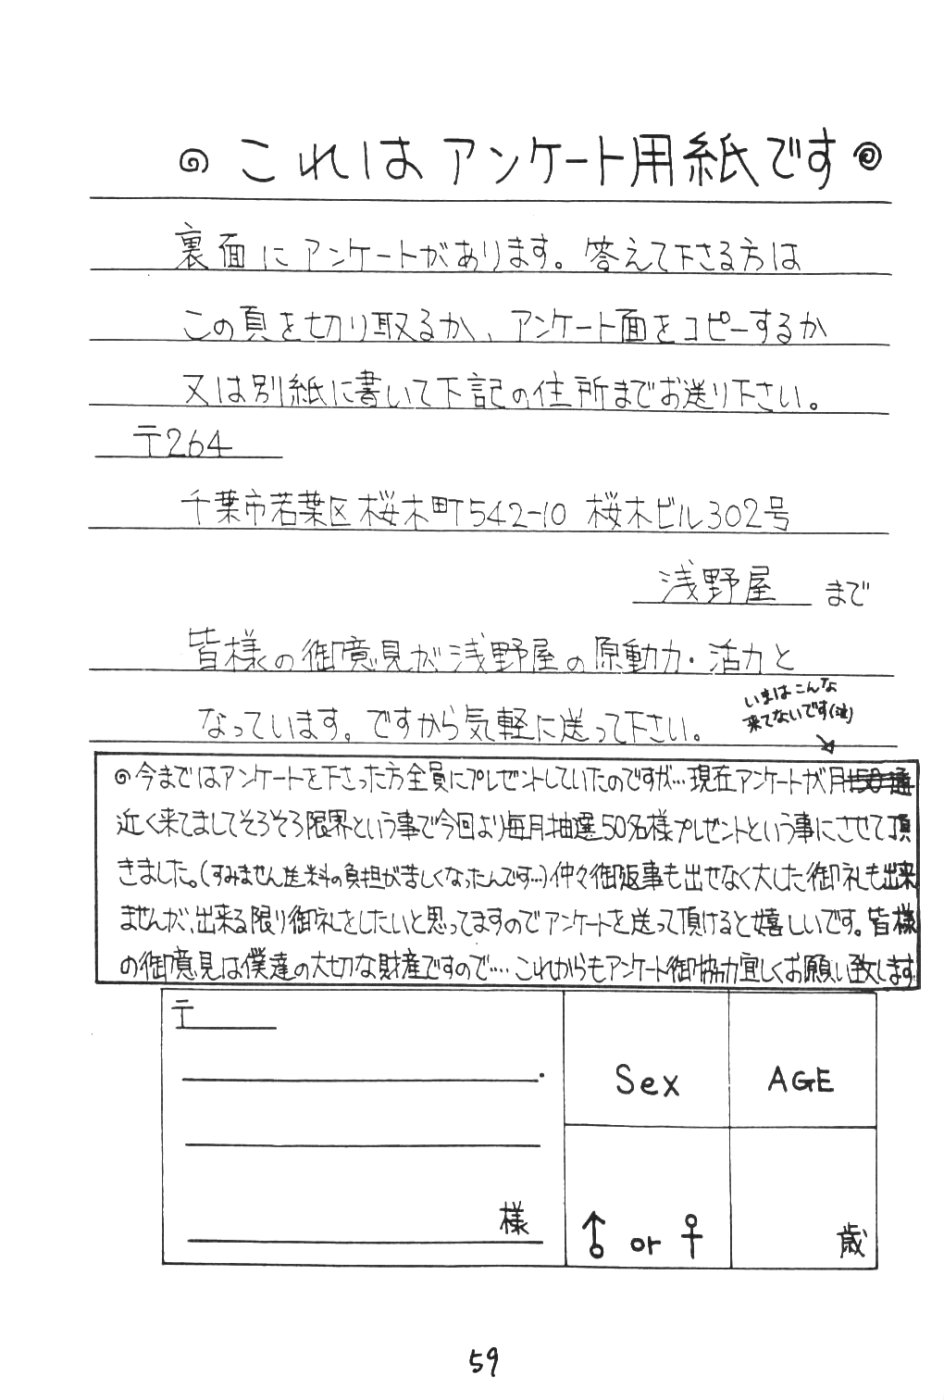 ◎ これはアンケート用紙です ◎
裏面にアンケートがあります。答えて下さる方は
この頁を切り取るか、アンケート面をコピーするか
又は別紙に書いて下記の住所までお送り下さい。
〒264
千葉市若葉区桜木町542-10 桜木ビル302号
浅野屋 まで
皆様の御意見が浅野屋の原動力・活力と
なっています。ですから気軽に送って下さい。
いまはこんな
来てないです(汗)
◎今まではアンケートを下さった方全員にプレゼントしていたのですが…現在アンケートが月150通
近く来てましてそろそろ限界という事で今回より毎月抽選50名様プレゼントという事にさせて頂
きました。(すみません送料の負担が苦しくなったんです…)仲々御返事も出せなく大した御礼も出来
ませんが、出来る限り御礼をしたいと思ってますのでアンケートを送って頂けると嬉しいです。皆様
の御意見は僕達の大切な財産ですので…。これからもアンケート御協力宜しくお願い致します
〒
様
Sex
AGE
♂ or ♀
歳
59